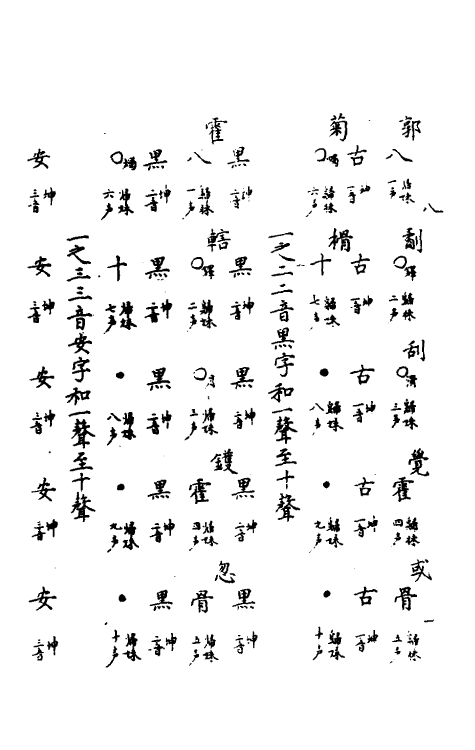 郭 劀 刮 覺 或
八 歸妹一声 ○ 歸妹二声 ○滑 歸妹三声 霍 歸妹四声 骨 歸妹五声
古 坤一音 古 坤一音 古 坤一音 古 坤一音 古 坤一音
菊 榾
○ 歸妹六声 十 歸妹七声 ● 歸妹八声 ● 歸妹九声 ● 歸妹十声
一之二二音黑字和一聲至十聲
黑 坤二音 黑 坤二音 黑 坤二音 黑 坤二音 黑 坤二音
霍 轄 鑊 忽
八 歸妹一声 ○ 歸妹二声 ○ 歸妹三声 霍 歸妹四声 骨 歸妹五声
黑 坤二音 黑 坤二音 黑 坤二音 黑 坤二音 黑 坤二音
○ 歸妹六声 十 歸妹七声 ● 歸妹八声 ● 歸妹九声 ● 歸妹十声
一之三三音安字和一聲至十聲
安 坤三音 安 坤三音 安 坤三音 安 坤三音 安 坤三音